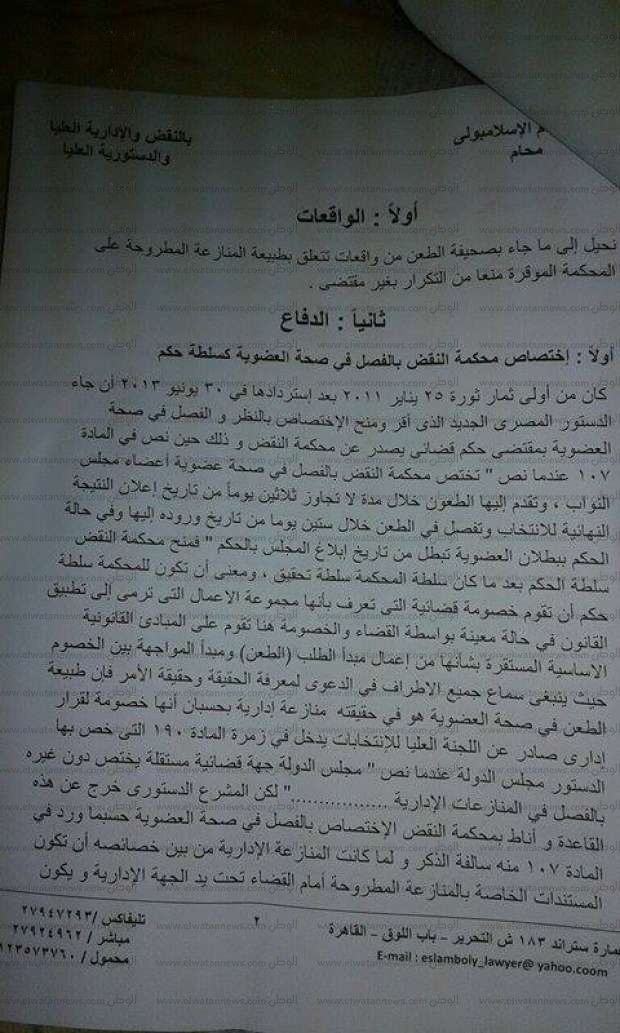 م الإسلامبولى
محام
بالنقض والإدارية العليا
والدستورية العليا
أولاً : الواقعات
نحيل إلى ما جاء بصحيفة الطعن من واقعات تتعلق بطبيعة المنازعة المطروحة على
المحكمة الموقرة منعا من التكرار بغير مقتضى .
ثانياً : الدفاع
أولاً : إختصاص محكمة النقض بالفصل في صحة العضوية كسلطة حكم
كان من أولى ثمار ثورة ٢٥ يناير ٢٠١١ بعد إستردادها في ٣٠ يونيو ٢٠١٣ أن جاء
الدستور المصرى الجديد الذى أقر ومنح الإختصاص بالنظر و الفصل في صحة
العضوية بمقتضى حكم قضائى يصدر عن محكمة النقض و ذلك حين نص في المادة
١٠٧ عندما نص " تختص محكمة النقض بالفصل في صحة عضوية أعضاء مجلس
النواب ، وتقدم إليها الطعون خلال مدة لا تجاوز ثلاثين يوماً من تاريخ إعلان النتيجة
النهائية للانتخاب وتفصل في الطعن خلال ستين يوما من تاريخ وروده إليها وفي حالة
الحكم ببطلان العضوية تبطل من تاريخ إبلاغ المجلس بالحكم " فمنح محكمة النقض
سلطة الحكم بعد ما كان سلطة المحكمة سلطة تحقيق ، ومعنى أن تكون للمحكمة سلطة
حكم أن تقوم خصومة قضائية التى تعرف بأنها مجموعة الاعمال التى ترمى إلى تطبيق
القانون في حالة معينة بواسطة القضاء والخصومة هنا تقوم على المبادئ القانونية
الاساسية المستقرة بشأنها من إعمال مبدأ الطلب (الطعن) ومبدأ المواجهة بين الخصوم
حيث ينبغى سماع جميع الاطراف في الدعوى لمعرفة الحقيقة وحقيقة الأمر فإن طبيعة
الطعن في صحة العضوية هو في حقيقته منازعة إدارية بحسبان أنها خصومة لقرار
إدارى صادر عن اللجنة العليا للإنتخابات يدخل في زمرة المادة ١٩٠ التى خص بها
الدستور مجلس الدولة عندما نص " مجلس الدولة جهة قضائية مستقلة يختص دون غيره
بالفصل في المنازعات الإدارية ................" لكن المشرع الدستورى خرج عن هذه
القاعدة و أناط بمحكمة النقض الإختصاص بالفصل في صحة العضوية حسبما ورد في
المادة ١٠٧ منه سالفة الذكر و لما كانت المنازعة الإدارية من بين خصائصه أن تكون
المستندات الخاصة بالمنازعة المطروحة أمام القضاء تحت يد الجهة الإدارية و يكون
٢
سارة ستراند ١٨٣ ش التحرير – باب اللوق – القاهرة
E-mail : eslamboly_lawyer@ yahoo.coom
تليفاكس /٢٧٩٤٧٢٩٣
مباشر / ٢٧٩٢٤٩٦٢
محمول / ١٢٣٥٧٣٧٦٠